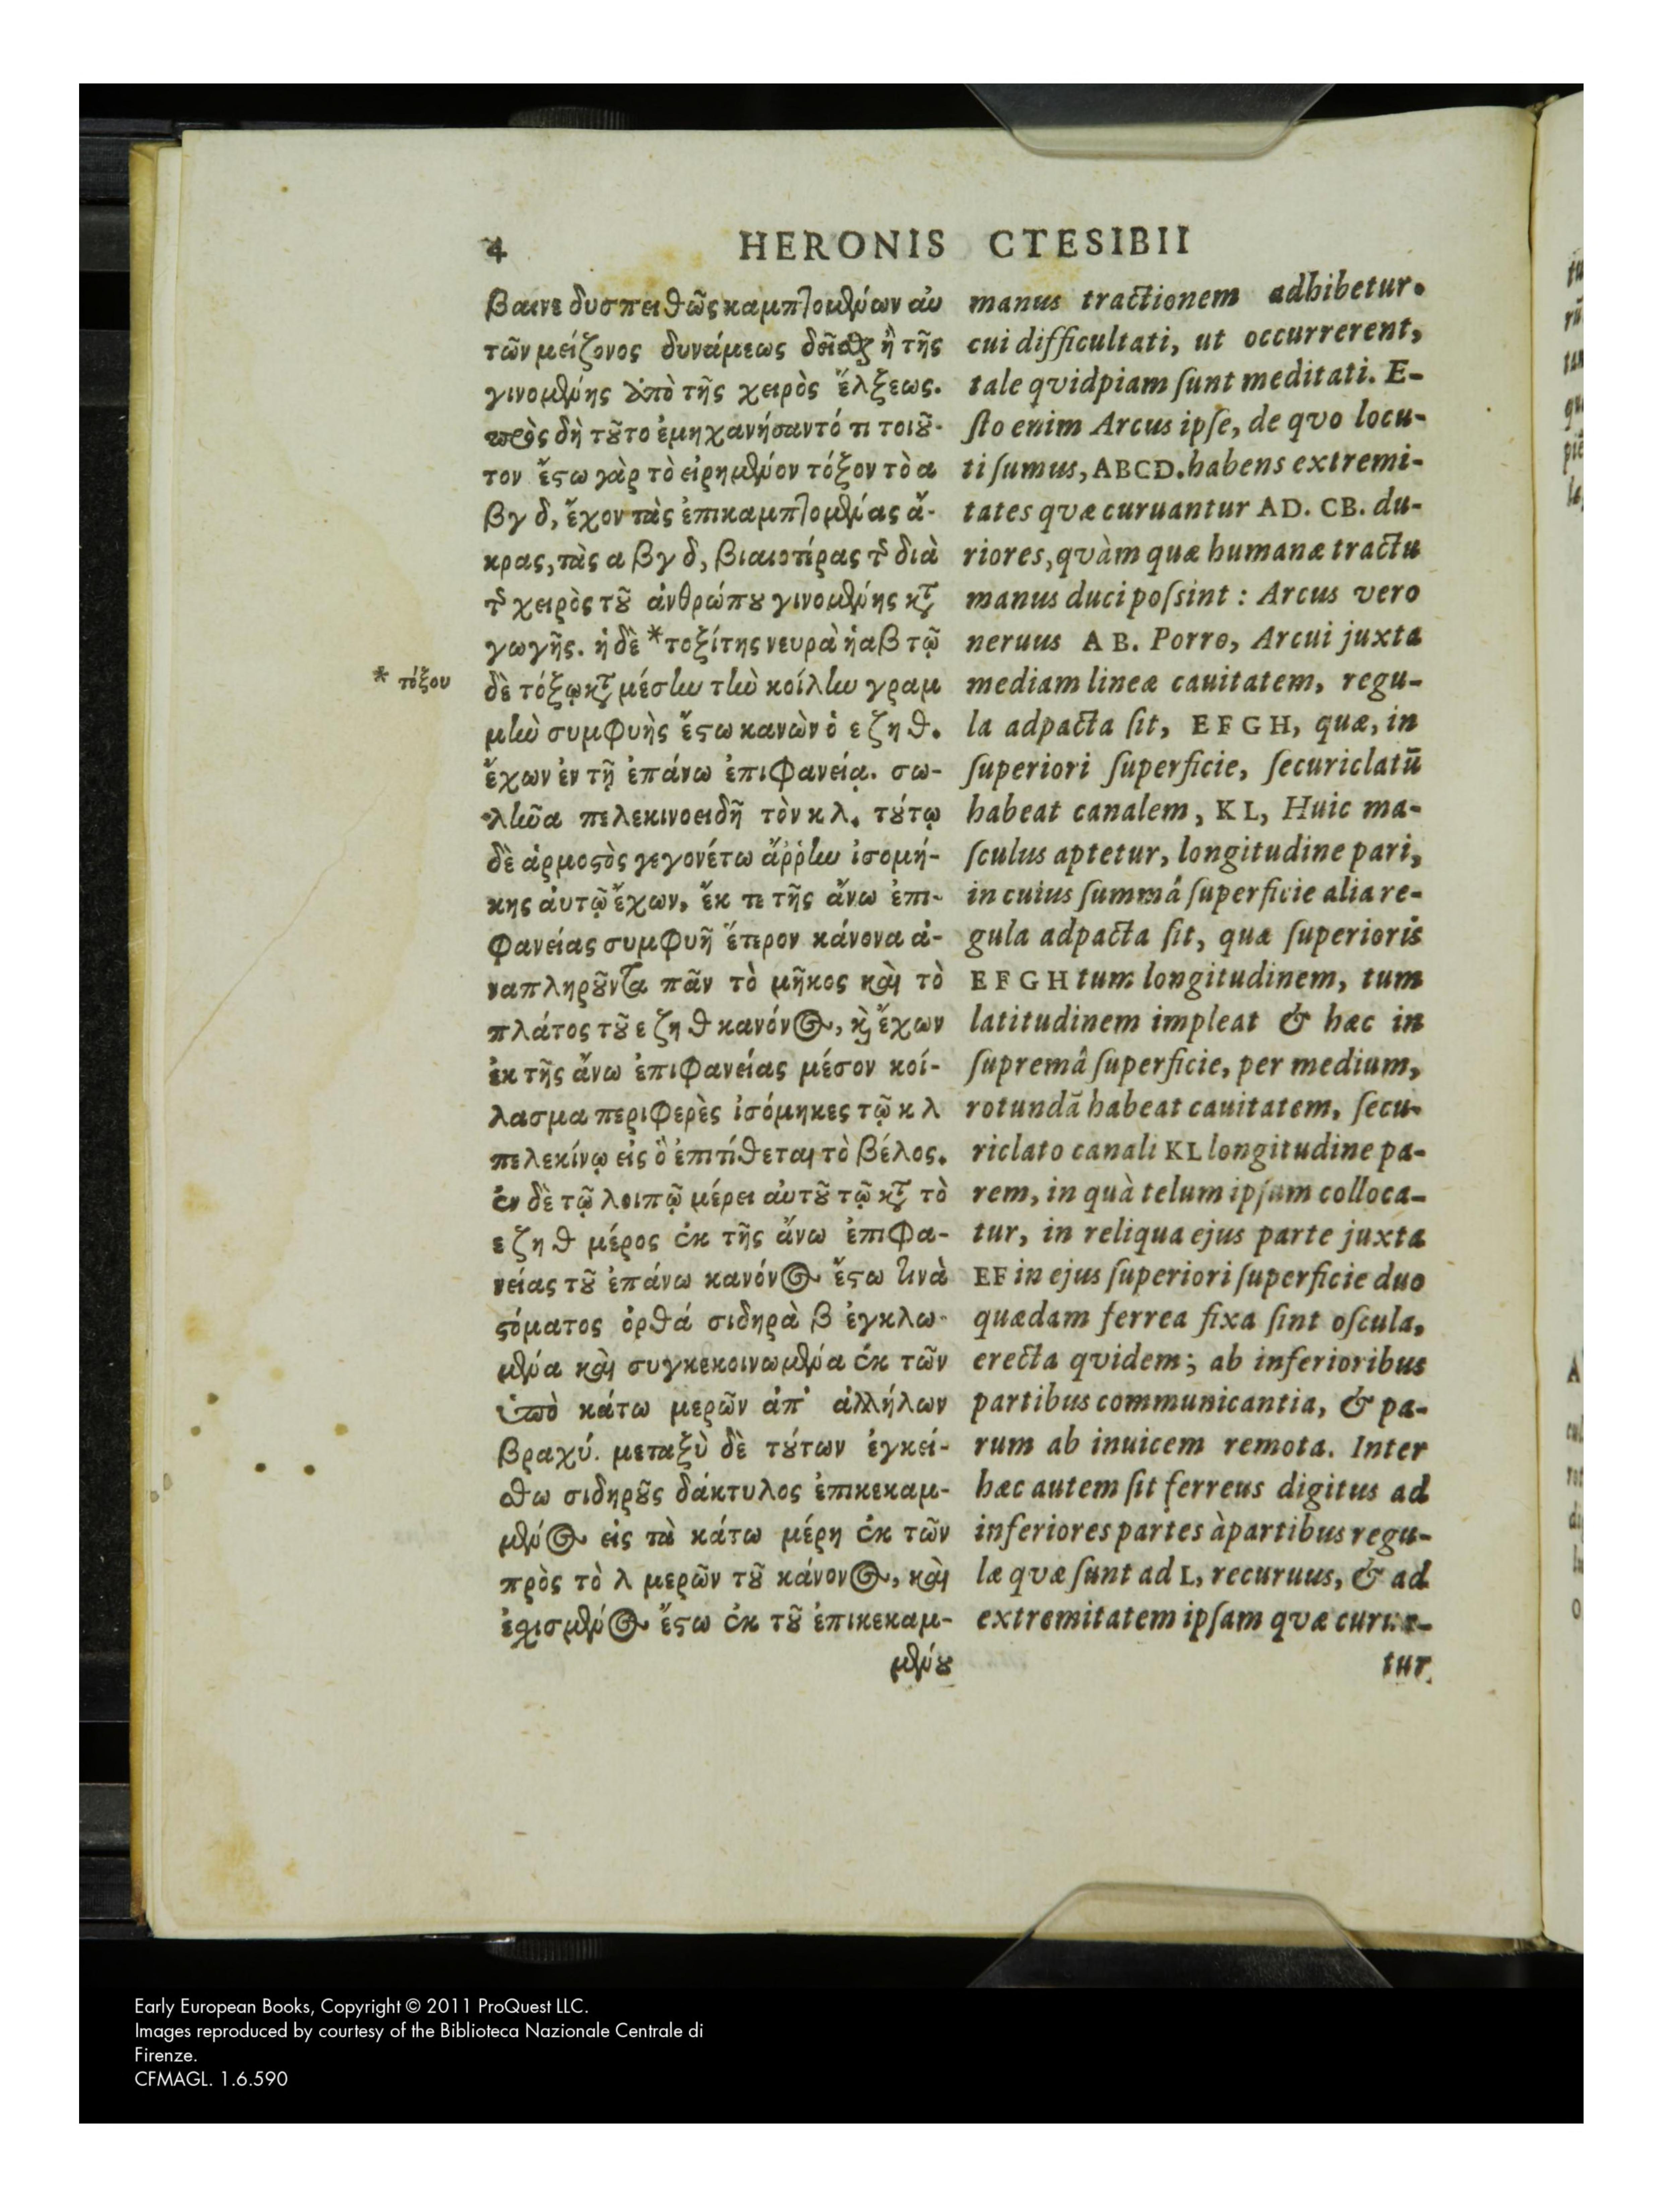 4 HERONIS CTESIBII
βαινε δυσπειθῶς καμπτομένων αὐ
τῶν μείζονος δυνάμεως δεῖσθαι ἢ τῆς
γινομένης ἀπὸ τῆς χειρὸς ἕλξεως.
πρὸς δὴ τοῦτο ἐμηχανήσαντό τι τοιοῦ-
τον ἔστω γὰρ τὸ εἰρημένον τόξον τὸ α
βγ δ, ἔχον τὰς ἐπικαμπτομένας ἄ-
κρας, τὰς α βγ δ, βιαιοτέρας τῆς διὰ
τῆς χειρὸς τοῦ ἀνθρώπου γινομένης κατα
γωγῆς. ἡ δὲ *τοξίτης νευρὰ ἡ αβ τῷ
* τόξου
δὲ τόξῳ κατὰ μέσην τὴν κοίλην γραμ
μὴν συμφυὴς ἔστω κανὼν ὁ ε ζη θ.
ἔχων ἐν τῇ ἐπάνω ἐπιφανείᾳ. σω-
λῆνα πελεκινοειδῆ τὸν κ λ. τούτῳ
δὲ ἁρμοστὸς γεγονέτω ἄῤῥην ἰσομή-
κης ἀυτῷ ἔχων, ἔκ τε τῆς ἄνω ἐπι-
φανείας συμφυῆ ἕτερον κάνονα ἀ-
ναπληροῦντα πᾶν τὸ μῆκος καὶ τὸ
πλάτος τοῦ ε ζη θ κανόνος, καὶ ἔχων
ἐκ τῆς ἄνω ἐπιφανείας μέσον κοί-
λασμα περιφερὲς ἰσόμηκες τῷ κ λ
πελεκίνῳ εἰς ὃ ἐπιτίθεται τὸ βέλος.
ἐν δὲ τῷ λοιπῷ μέρει ἀυτοῦ τῷ κατὰ τὸ
ε ζη θ μέρος ἐκ τῆς ἄνω ἐπιφα-
νείας τοῦ ἐπάνω κανόνος ἔστω τινὰ
στόματος ὀρθά σιδηρὰ β ἐγκλω-
μένα καὶ συγκεκοινωμένα ἐκ τῶν
ὑπὸ κάτω μερῶν ἀπ' ἀλλήλων
βραχύ. μεταξὺ δὲ τούτων ἐγκεί-
σθω σιδηροῦς δάκτυλος ἐπικεκαμ-
μένος εἰς τὰ κάτω μέρη ἐκ τῶν
πρὸς τὸ λ μερῶν τοῦ κάνονος, καὶ
ἐχισμένος ἔστω ἐκ τοῦ ἐπικεκαμ-
μένου
manus tractionem adhibetur.
cui difficultati, ut occurrerent,
tale qvidpiam sunt meditati. E-
sto enim Arcus ipse, de qvo locu-
ti sumus, ABCD. habens extremi-
tates qvæ curuantur AD. CB. du-
riores, qvàm quæ humanæ tractu
manus duci possint : Arcus vero
neruus A B. Porro, Arcui juxta
mediam lineæ cauitatem, regu-
la adpacta sit, E F G H, quæ, in
superiori superficie, securiclatũ
habeat canalem, K L, Huic ma-
sculus aptetur, longitudine pari,
in cuius summâ superficie alia re-
gula adpacta sit, quæ superioris
E F G H tum longitudinem, tum
latitudinem impleat & hæc in
supremâ superficie, per medium,
rotundã habeat cauitatem, secu-
riclato canali KL longitudine pa-
rem, in quà telum ipsum colloca-
tur, in reliqua ejus parte juxta
EF in ejus superiori superficie duo
quædam ferrea fixa sint oscula,
erecta qvidem; ab inferioribus
partibus communicantia, & pa-
rum ab inuicem remota. Inter
hæc autem sit ferreus digitus ad
inferiores partes à partibus regu-
læ qvæ sunt ad L, recuruus, & ad
extremitatem ipsam qvæ curua-
tur
Early European Books, Copyright © 2011 ProQuest LLC.
Images reproduced by courtesy of the Biblioteca Nazionale Centrale di
Firenze.
CFMAGL. 1.6.590